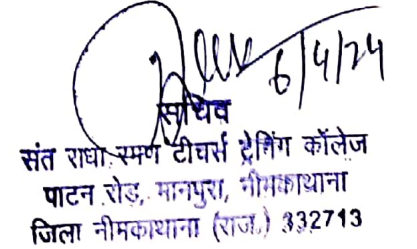 6/4/24
सचिव
संत राधा रमण टीचर्स ट्रेनिंग कॉलेज
पाटन रोड, मानपुरा, नीमकाथाना
जिला नीमकाथाना (राज.) 332713